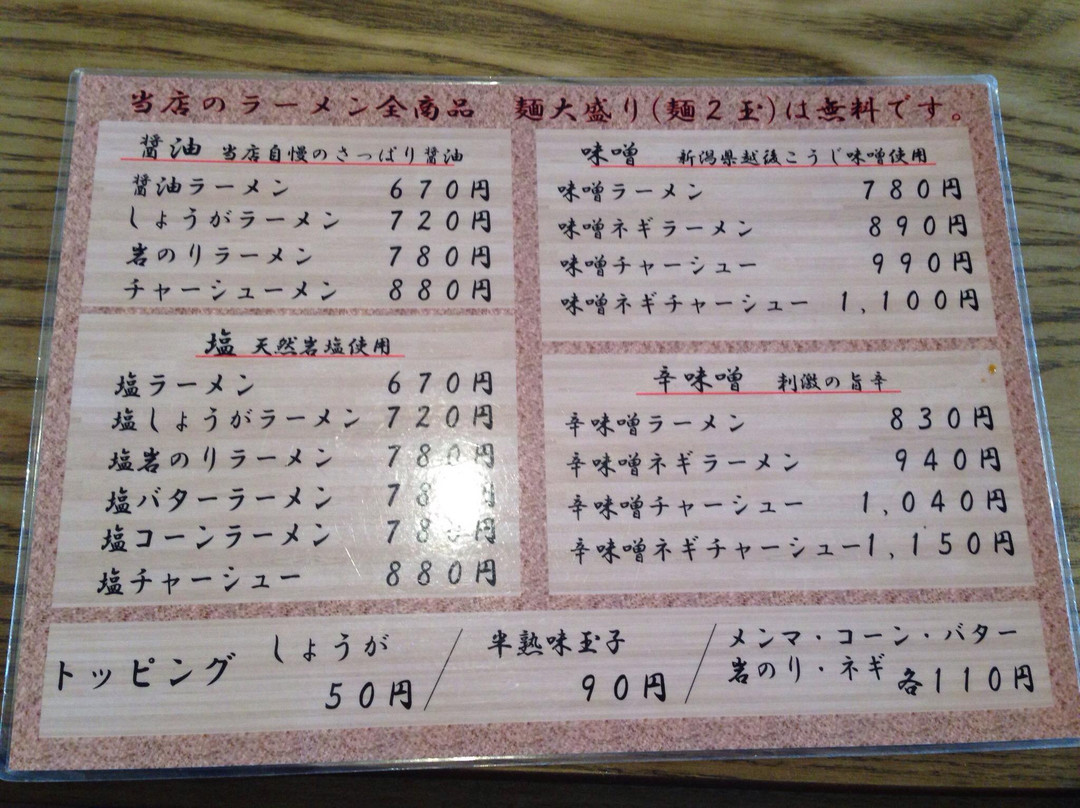 当店のラーメン全商品　麺大盛り(麺２玉)は無料です。
醤油　当店自慢のさっぱり醤油
醤油ラーメン　６７０円
しょうがラーメン　７２０円
岩のりラーメン　７８０円
チャーシューメン　８８０円
塩　天然岩塩使用
塩ラーメン　６７０円
塩しょうがラーメン　７２０円
塩岩のりラーメン　７８０円
塩バターラーメン　７８
塩コーンラーメン　７８０円
塩チャーシュー　８８０円
味噌　新潟県越後こうじ味噌使用
味噌ラーメン　７８０円
味噌ネギラーメン　８９０円
味噌チャーシュー　９９０円
味噌ネギチャーシュー　１,１００円
辛味噌　刺激の旨辛
辛味噌ラーメン　８３０円
辛味噌ネギラーメン　９４０円
辛味噌チャーシュー　１,０４０円
辛味噌ネギチャーシュー１,１５０円
トッピング
しょうが
５０円
半熟味玉子
９０円
メンマ・コーン・バター
岩のり・ネギ　各１１０円